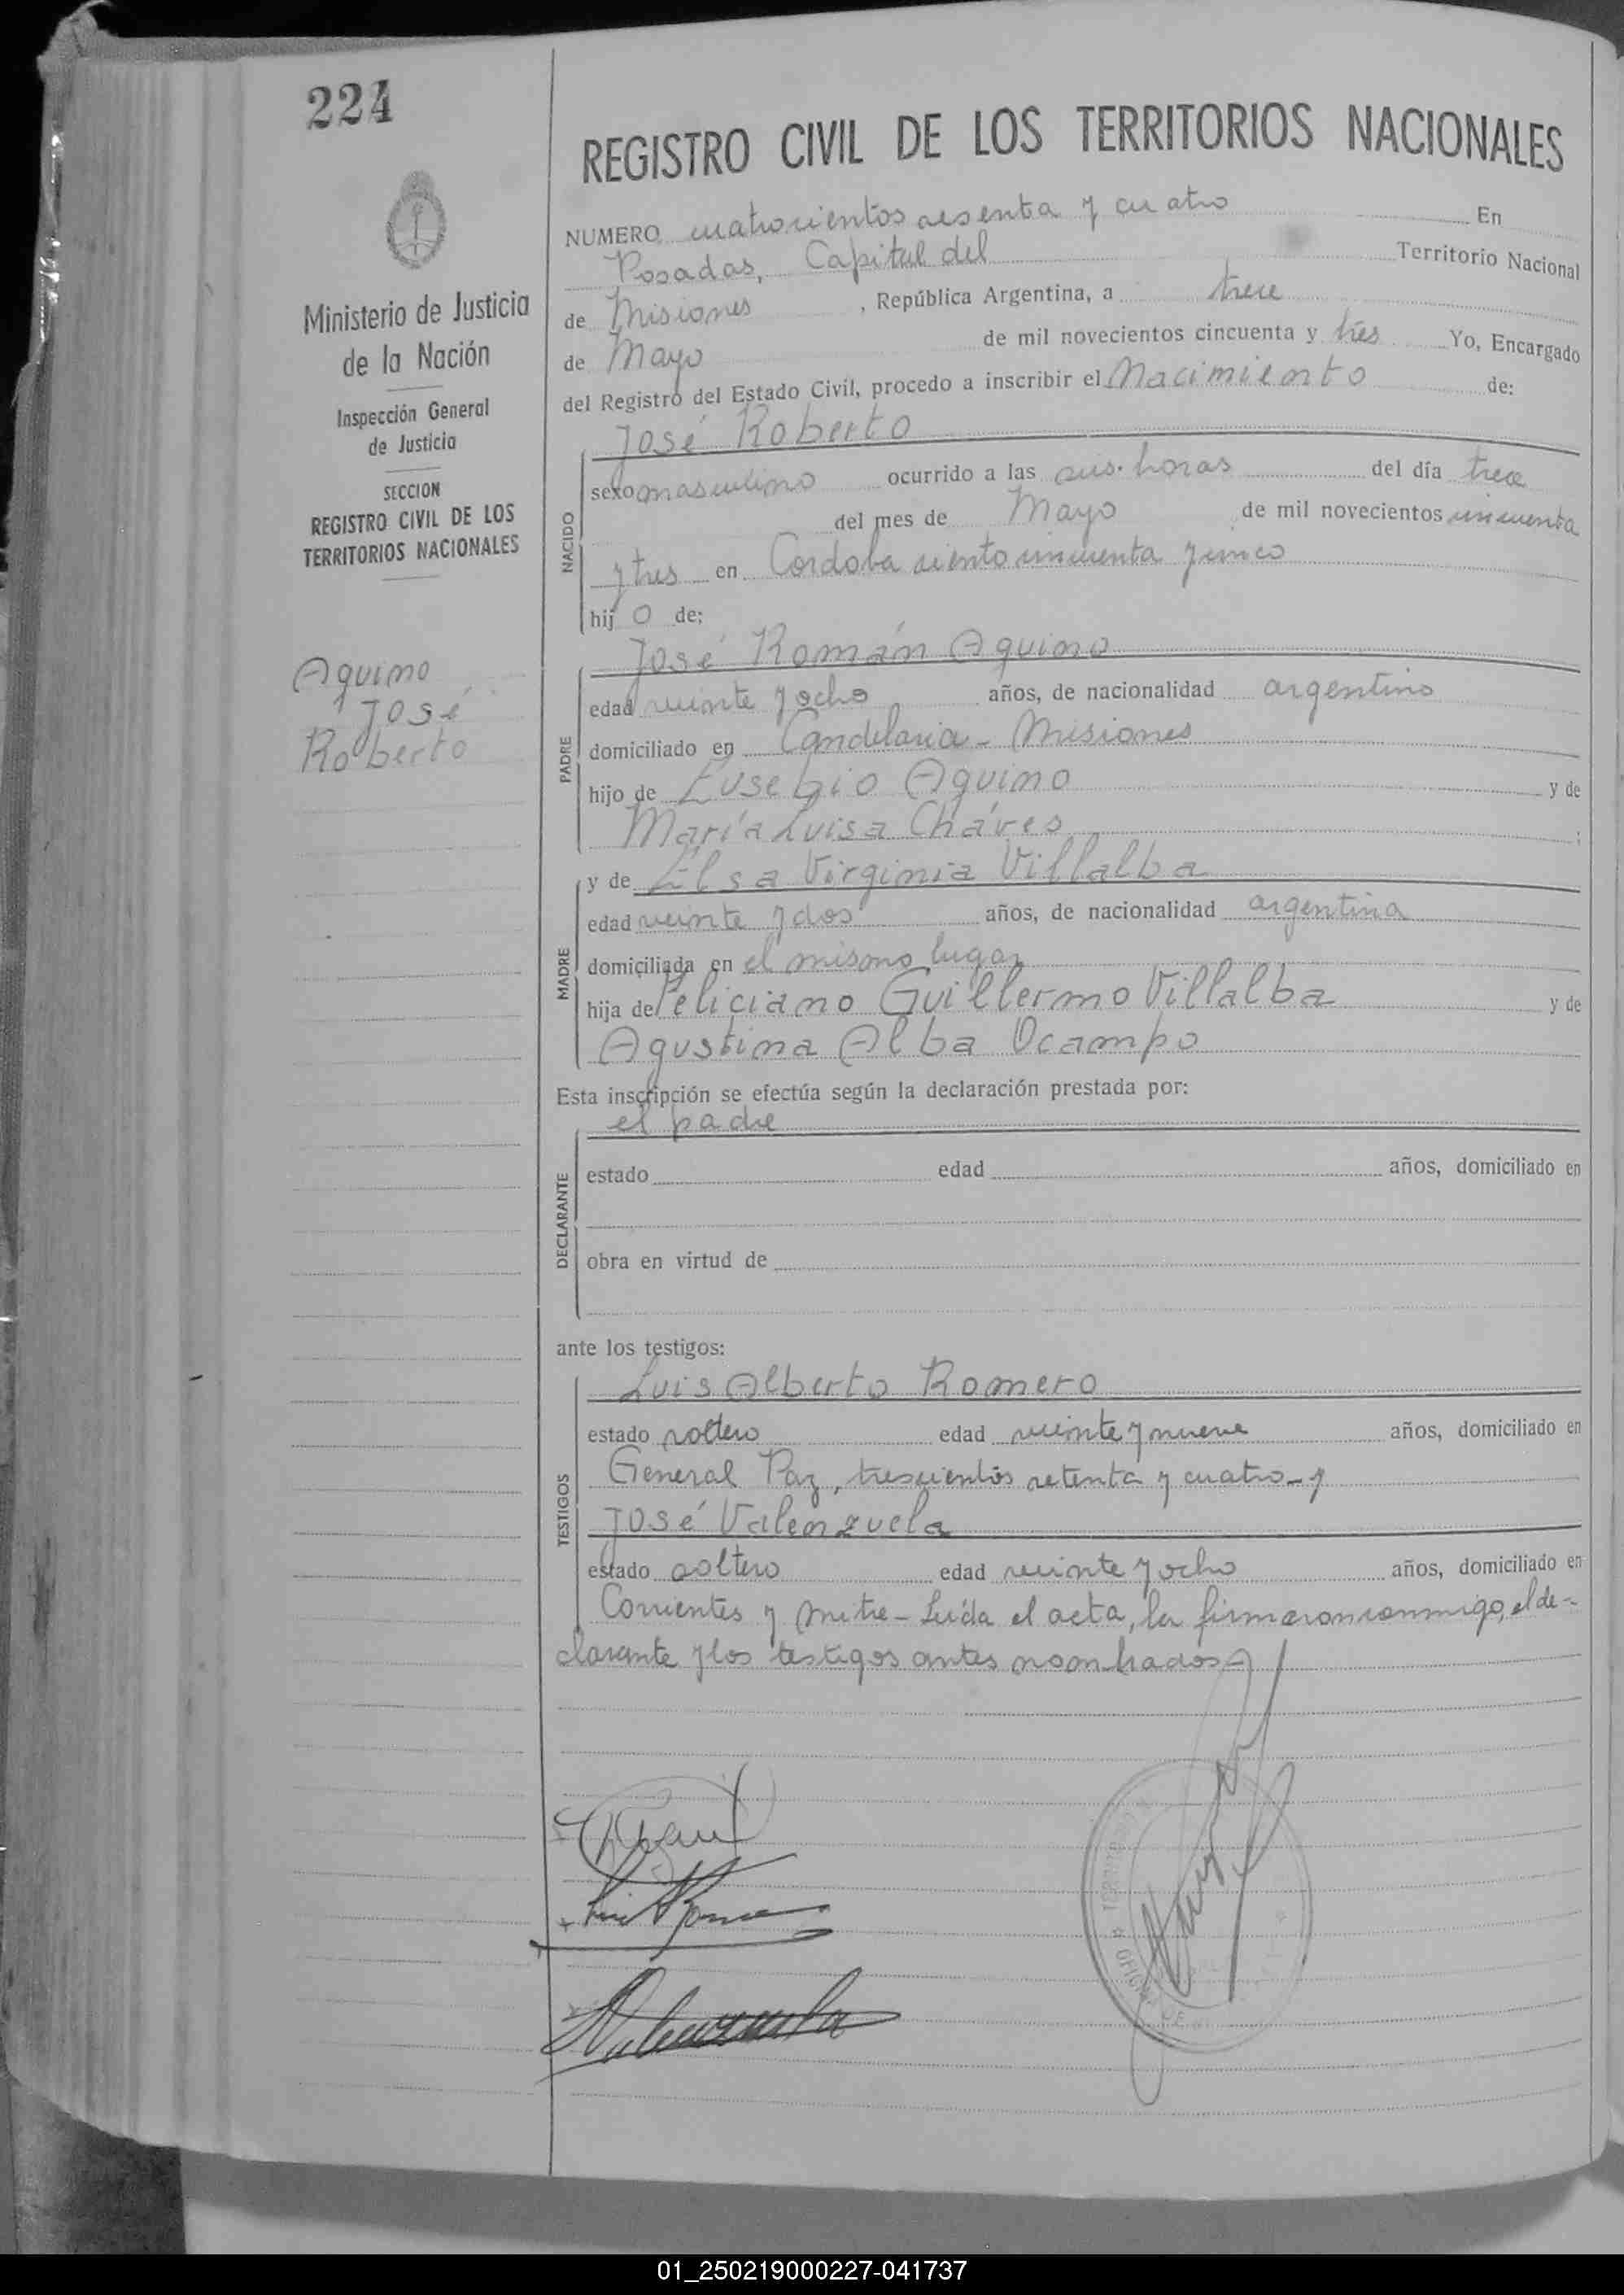 224
REGISTRO CIVIL DE LOS TERRITORIOS NACIONALES
Ministerio de Justicia
de la Nación
Inspección General
de Justicia
SECCION
REGISTRO CIVIL DE LOS
TERRITORIOS NACIONALES
Aquino
José
Roberto
NUMERO cuatrocientos sesenta y cuatro En
Posadas, Capital del Territorio Nacional
de Misiones, República Argentina, a trece
de Mayo de mil novecientos cincuenta y tres Yo, Encargado
del Registro del Estado Civil, procedo a inscribir el Nacimiento de:
José Roberto
NACIDO
sexo masculino ocurrido a las seis horas del día trece
del mes de Mayo de mil novecientos cincuenta
y tres en Cordoba ciento cincuenta y cinco
hij o de:
PADRE
José Román Aquino
edad veinte y ocho años, de nacionalidad argentino
domiciliado en Candelaria - Misiones
hijo de Eusebio Aquino y de
María Luisa Cháves ;
MADRE
y de Elsa Virginia Villalba
edad veinte y dos años, de nacionalidad argentina
domiciliada en el mismo lugar
hija de Feliciano Guillermo Villalba y de
Agustina Alba Ocampo
Esta inscripción se efectúa según la declaración prestada por:
el padre
DECLARANTE
estado edad años, domiciliado en
obra en virtud de
ante los testigos:
TESTIGOS
Luis Alberto Romero
estado soltero edad veinte y nueve años, domiciliado en
General Paz, trescientos setenta y cuatro - y
José Valenzuela
estado soltero edad veinte y ocho años, domiciliado en
Corrientes y Mitre - Leída el acta, la firmaron conmigo, el de-
clarante y los testigos antes nombrados
Valenzuela
01_250219000227-041737